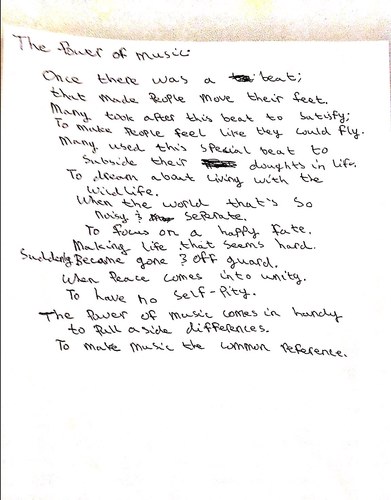 The Power of music
Once there was a beat;
that made People move their feet.
Many took after this beat to Satisfy;
To make People feel like they could fly.
Many used this special beat to
Subside their doughts in life.
To dream about living with the
wildlife.
When the world that's so
noisy & seperate.
To focus on a happy fate.
Making life that seems hard.
Suddenly Became gone & off guard.
When Peace comes into unity.
To have no self-Pity.
The Power of music comes in handy
to Pull aside differences.
To make music the common reference.